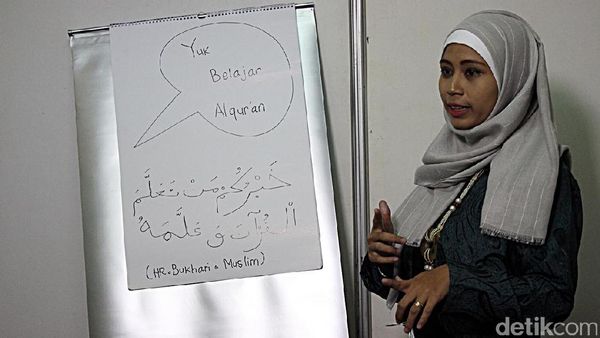 Yuk
Belajar
Alqur'an
خَيْرُكُمْ مَنْ تَعَلَّمَ
الْقُرْآنَ وَ عَلَّمَهُ
(HR. Bukhari Muslim)
detikcom